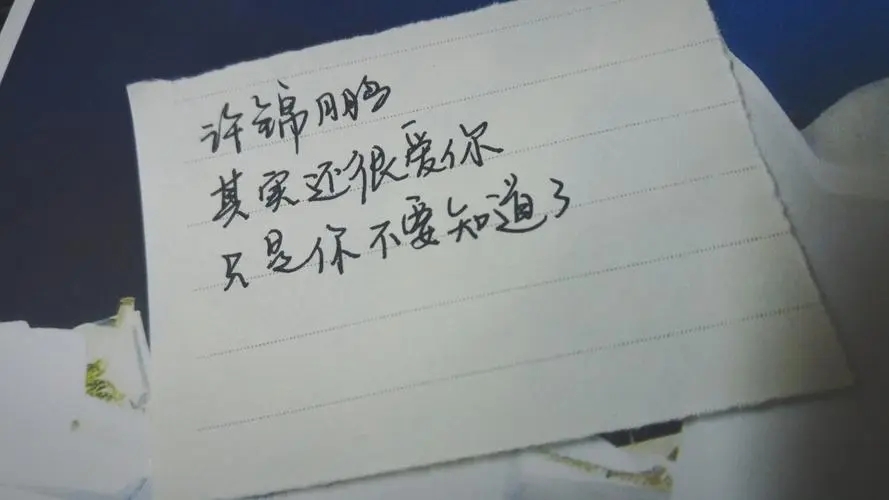 许锦鹏
其实还很爱你
只是你不要知道了